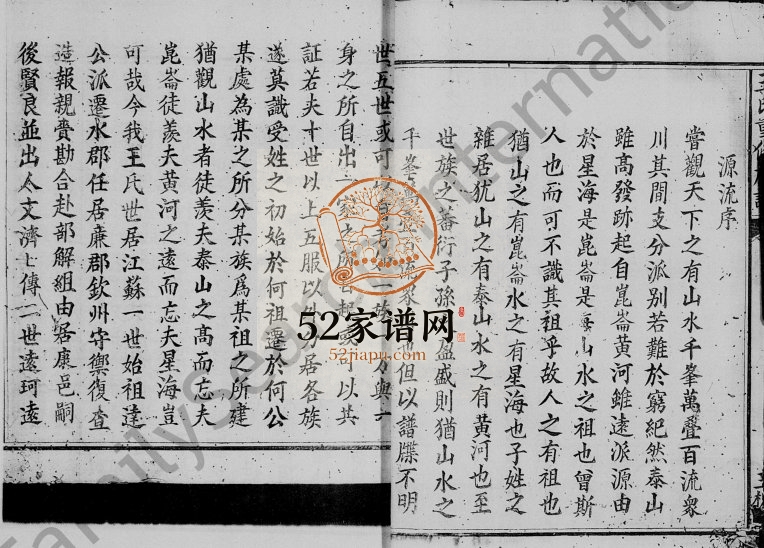 源流序
嘗觀天下之有山水千峯萬疊百流衆
川其間支分派別若難於窮紀然泰山
雖高發跡起自崑崙黃河雖遠派源由
於星海是崑崙是海山水之祖也曾斯
人也而可不識其祖乎故人之有祖也
猶山之有崑崙水之有星海也子姓之
雜居犹山之有泰山水之有黃河也至
世族之蕃衍子孫盈盛則猶山水之
千峯疊百流但以譜牒不明
世五世或可以一族與一
身之所自出一家之以其
証若夫十世以上五服以居各族
遂莫識受姓之初始於何祖遷於何公
某處為某之所分某族爲某祖之所建
猶觀山水者徒羨夫泰山之高而忘夫
崑崙徒羨夫黃河之遠而忘夫星海豈
可哉今我王氏世居江蘇一世始祖達
公派遷水郡任居廉郡欽州守禦復查
造報親賫勘合赴部解組由居康邑嗣
後賢良並出人文濟濟傳二世遠珂遠
52家谱网
52jiapu.com
FamilySearch International